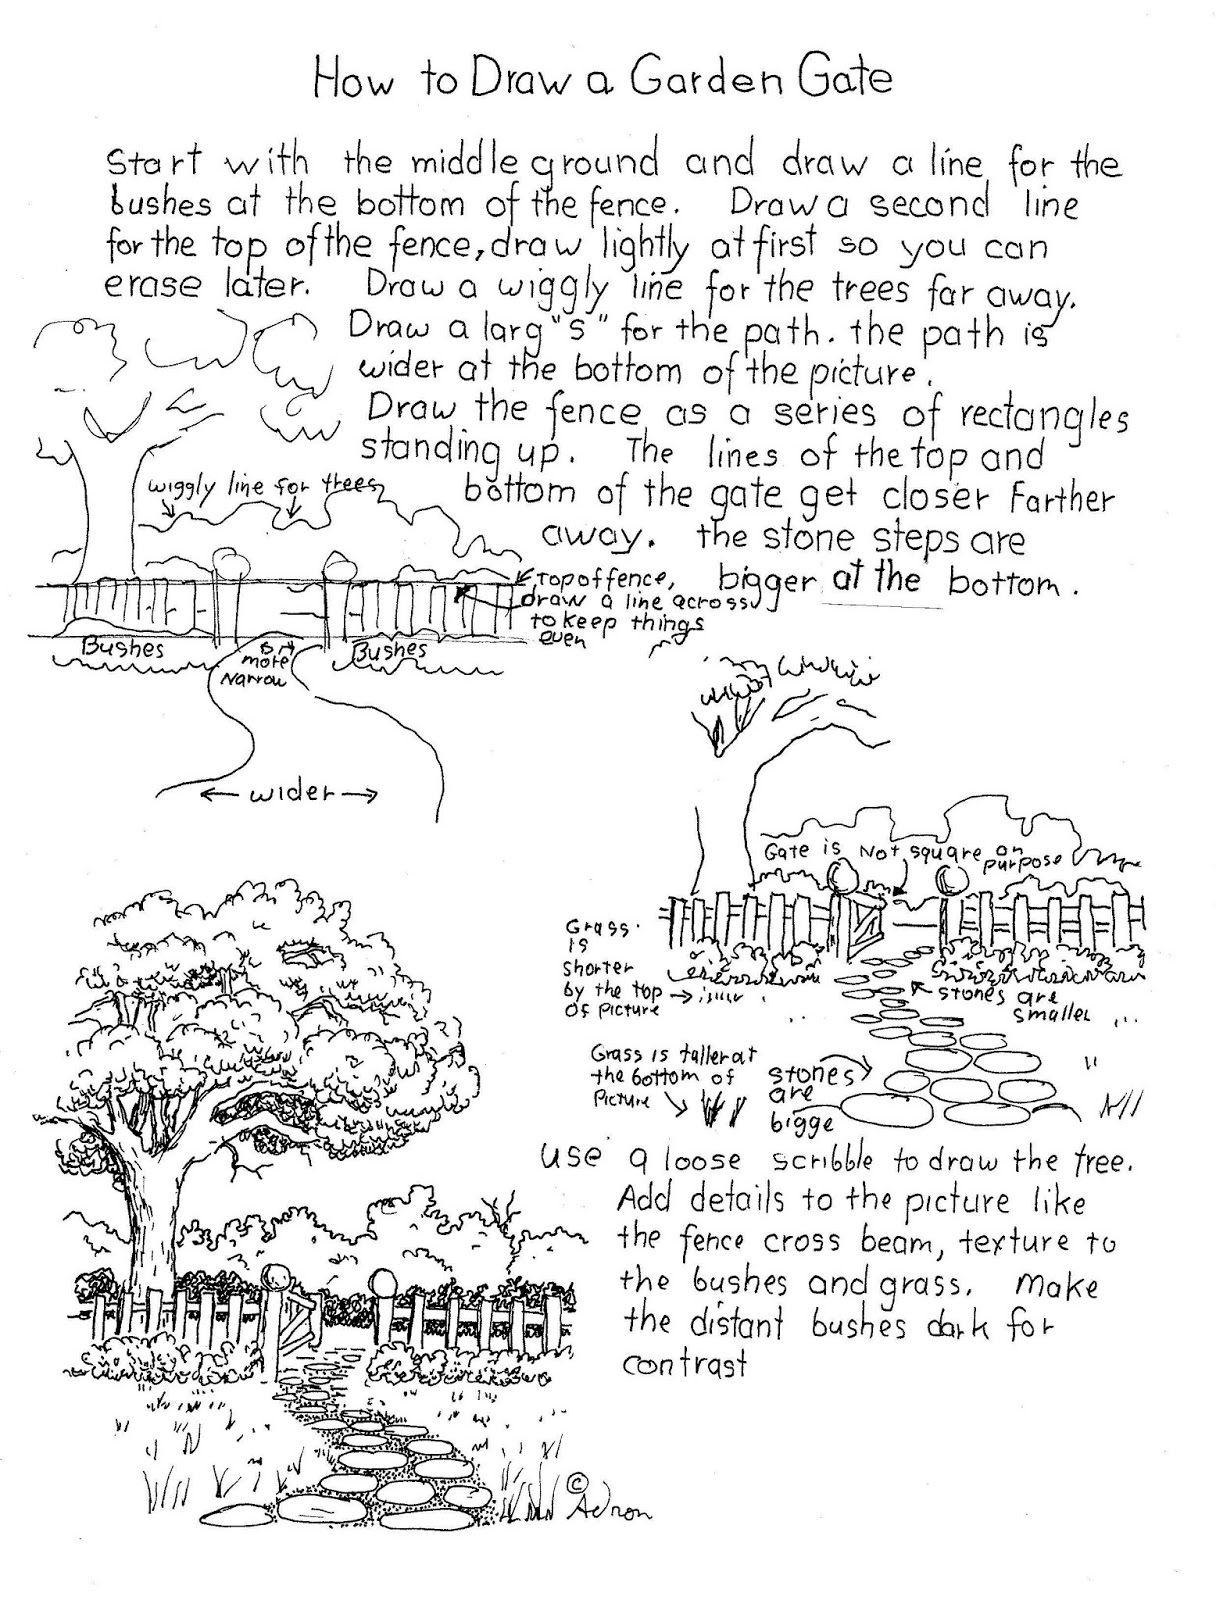 How to Draw a Garden Gate
Start with the middle ground and draw a line for the
bushes at the bottom of the fence. Draw a second line
for the top of the fence, draw lightly at first so you can
erase later. Draw a wiggly line for the trees far away.
Draw a larg "s" for the path. the path is
wider at the bottom of the picture.
Draw the fence as a series of rectangles
standing up. The lines of the top and
bottom of the gate get closer farther
away. the stone steps are
bigger at the bottom.
wiggly line for trees
top of fence,
draw a line across
to keep things
even
Bushes
is
more
Narrow
Bushes
← wider →
Gate is Not square on
purpose
Grass
is
shorter
by the top →
of picture
stones are
smaller
Grass is taller at
the bottom of
Picture
stones
are
bigge
use a loose scribble to draw the tree.
Add details to the picture like
the fence cross beam, texture to
the bushes and grass. Make
the distant bushes dark for
contrast
© Adron